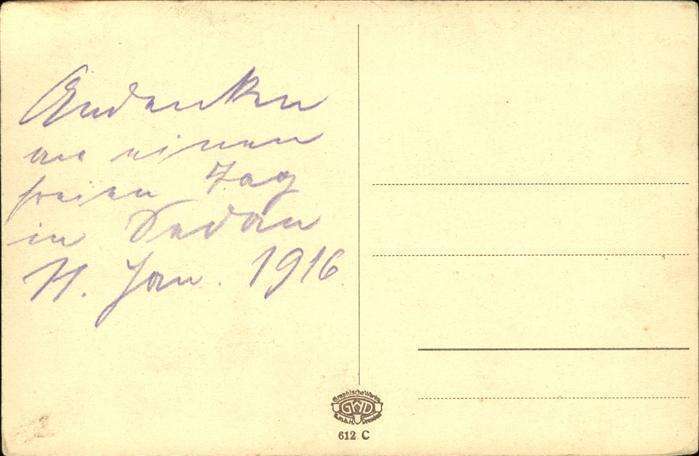 Andenken
an einen
freien Tag
in Sedan
11. Jan. 1916
GWD
612 C